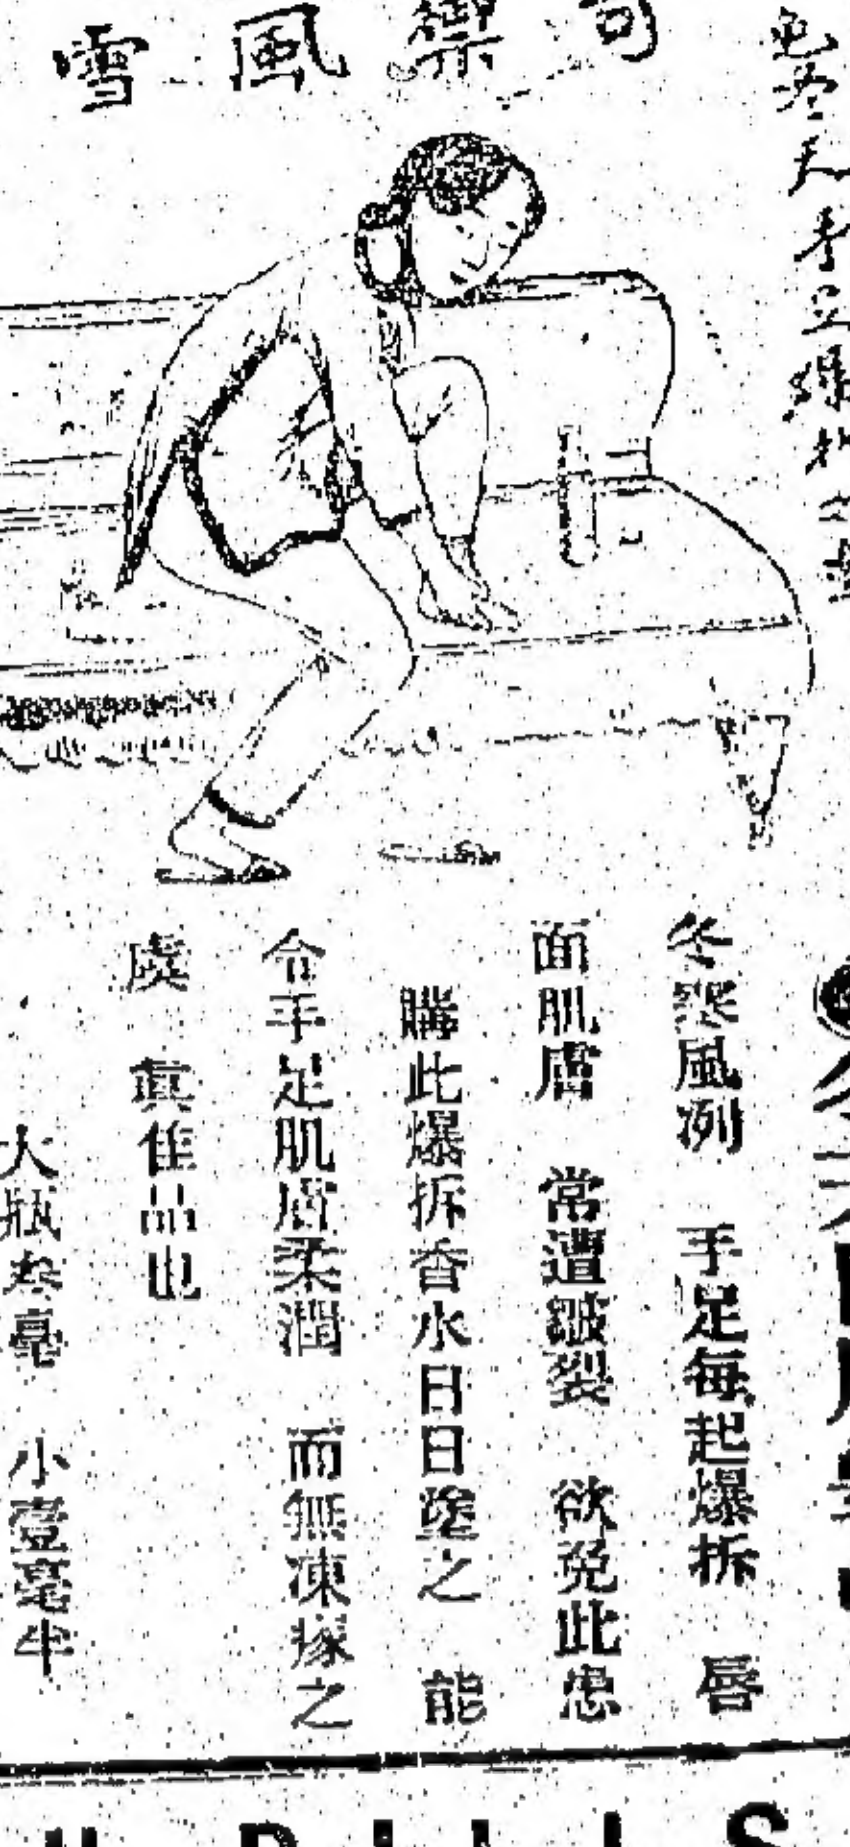 可禦風雪
免冬天手足爆拆之患
冬深風冽 手足每起爆拆 唇
面肌膚 常遭皸裂 欲免此患
購此爆拆香水日日塗之 能
令手足肌膚柔潤 而無凍瘃之
處 眞佳品也
大瓶叁毫 小壹毫半